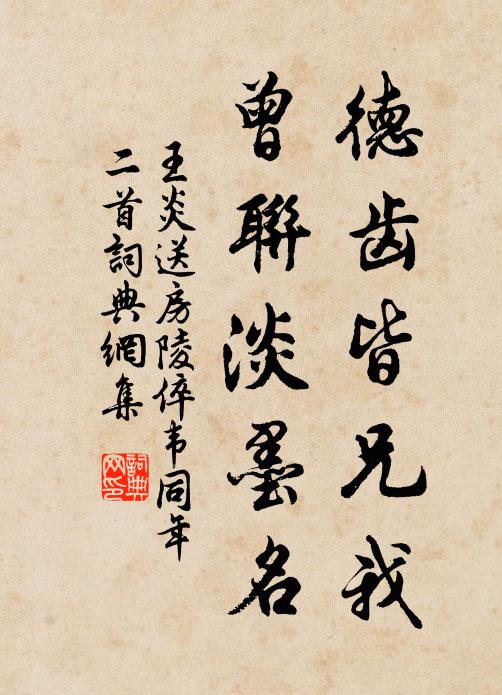 德齿皆兄我
曾聯淡墨名
王炎送房陵倅韦同年
二首詞典網集
詞典网印